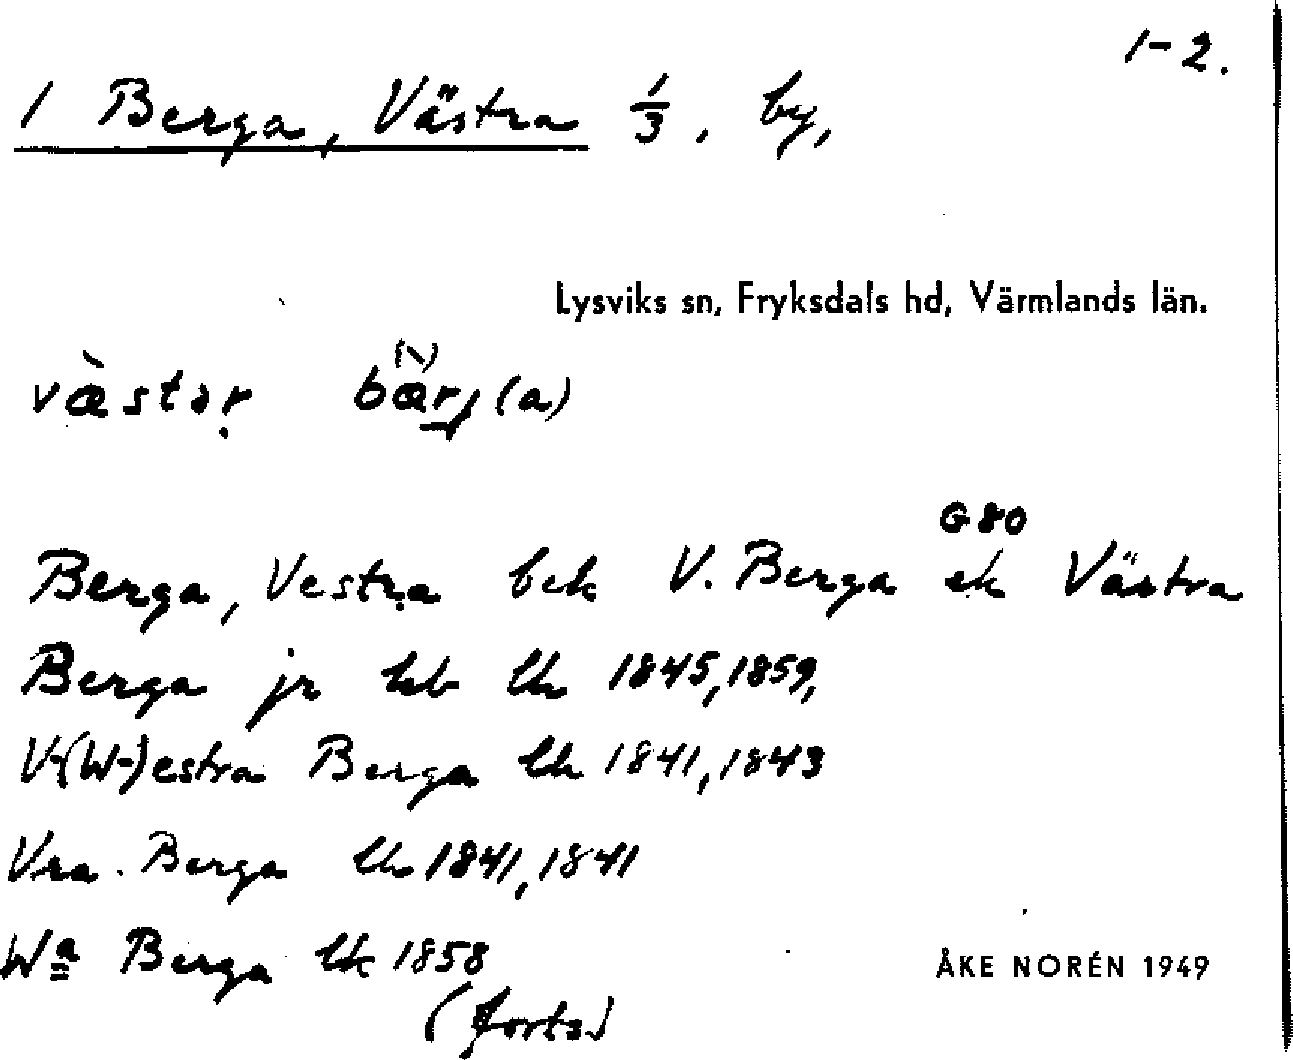 1-2.
1 Berga, Västra 1/3, by,
Lysviks sn, Fryksdals hd, Värmlands län.
væ̀stər̥ bæ̀rj(a)
G80
Berga, Vestra bek V. Berga ek Västra
Berga jr hb lk 1845, 1859,
V-(W-)estra Berga lk 1841, 1843
Vra. Berga lk 1841, 1841
Wa Berga lk 1858
ÅKE NORÉN 1949
(forts)